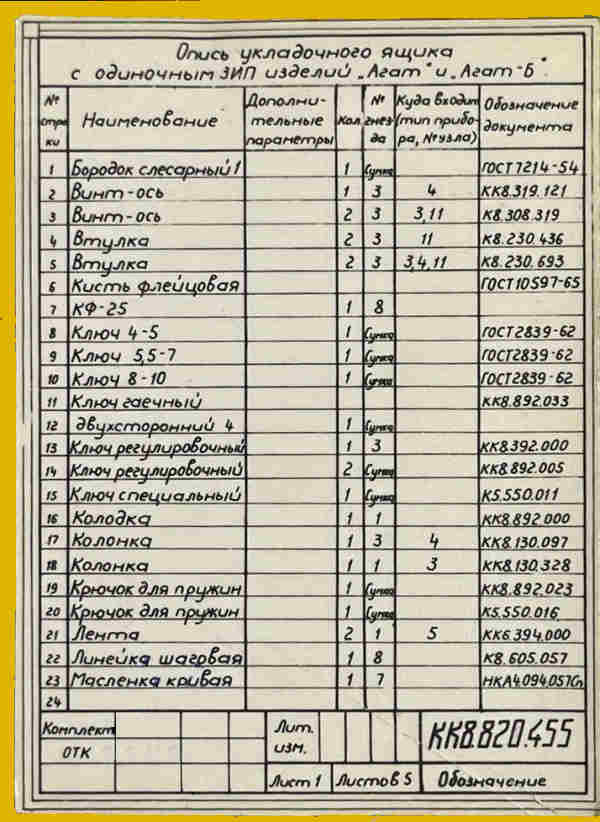 Опись укладочного ящика
с одиночным ЗИП изделий „Агат" и „Агат-Б".
№ строки Наименование Дополнительные параметры Кол. № гнезда Куда входит (тип прибора, № узла) Обозначение документа
1 Бородок слесарный 1 1 Сумка ГОСТ 7214-54
2 Винт-ось 1 3 4 КК8.319.121
3 Винт-ось 2 3 3,11 К8.308.319
4 Втулка 2 3 11 К8.230.436
5 Втулка 2 3 3,4,11 К8.230.693
6 Кисть флейцовая ГОСТ 10597-65
7 КФ-25 1 8
8 Ключ 4-5 1 Сумка ГОСТ 2839-62
9 Ключ 5,5-7 1 Сумка ГОСТ 2839-62
10 Ключ 8-10 1 Сумка ГОСТ 2839-62
11 Ключ гаечный КК8.892.033
12 двухсторонний 4 1 Сумка
13 Ключ регулировочный 1 3 КК8.392.000
14 Ключ регулировочный 2 Сумка КК8.892.005
15 Ключ специальный 1 Сумка К5.550.011
16 Колодка 1 1 КК8.892.000
17 Колонка 1 3 4 КК8.130.097
18 Колонка 1 1 3 КК8.130.328
19 Крючок для пружин 1 Сумка КК8.892.023
20 Крючок для пружин 1 Сумка К5.550.016
21 Лента 2 1 5 КК6.394.000
22 Линейка шаговая 1 8 К8.605.057
23 Масленка кривая 1 7 НКА4.094.057Сп
24
Комплект Лит. КК8.820.455
ОТК изм.
Лист 1 Листов 5 Обозначение